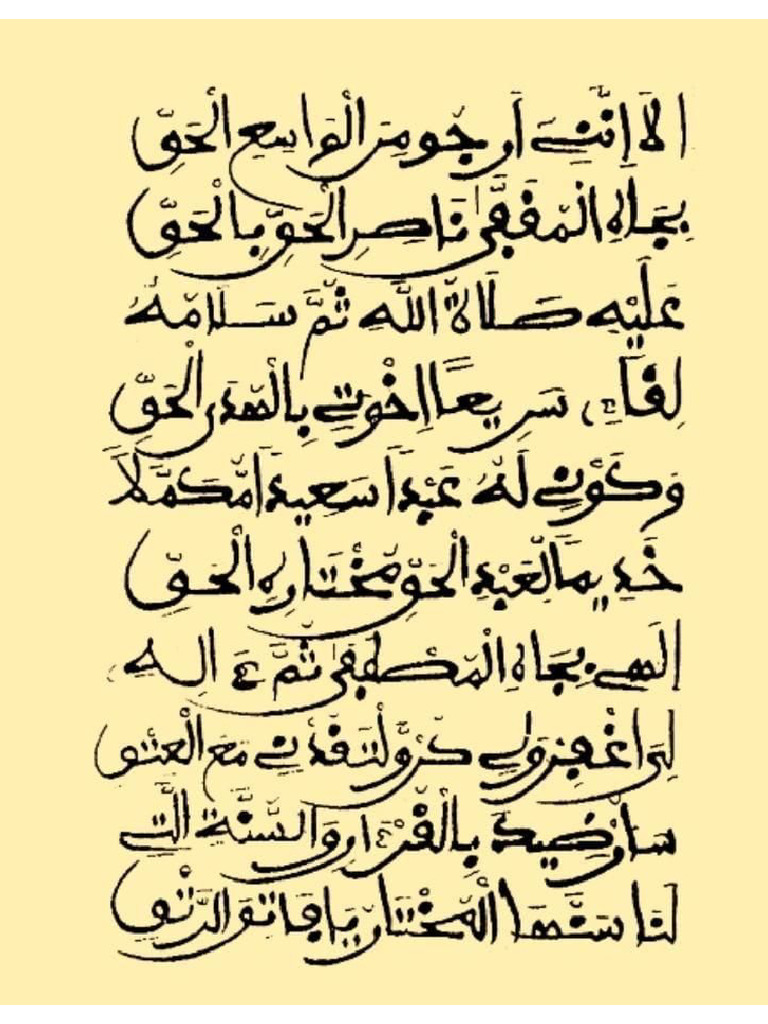 الا إِنَّنِي أَرجو مِنَ الْوَاسِعِ الْحَقِّ
بِجَاهِ الْمُقَفَّى نَاصِرِ الْحَقِّ بِالْحَقِّ
عَلَيْهِ صَلَاةُ اللَّهِ ثُمَّ سَلَامُهُ
لِقَاءً سَرِيعًا إِخْوَتِي الْحَقِّ
وَكَوْنِي لَهُ عَبْدًا سَعِيدًا مُكَمَّلَا
خَدِيمًا لِعَبْدِ الْحَقِّ مُخْتَارِهِ الْحَقِّ
إِلَهِي بِجَاهِ الْمُصْطَفَى ثُمَّ ءَالِهِ
لِيَ اغْفِرْ وَلِي كُنْ وَلْتَقُدْنِي مَعَ الْعِتْقِ
سَأُرْضِيكَ بِالْقُرْءَانِ وَالسُّنَّةِ الَّتِي
لَنَا سَنَّهَا الْمُخْتَارُ يَا فَاتِقَ الرَّتْقِ